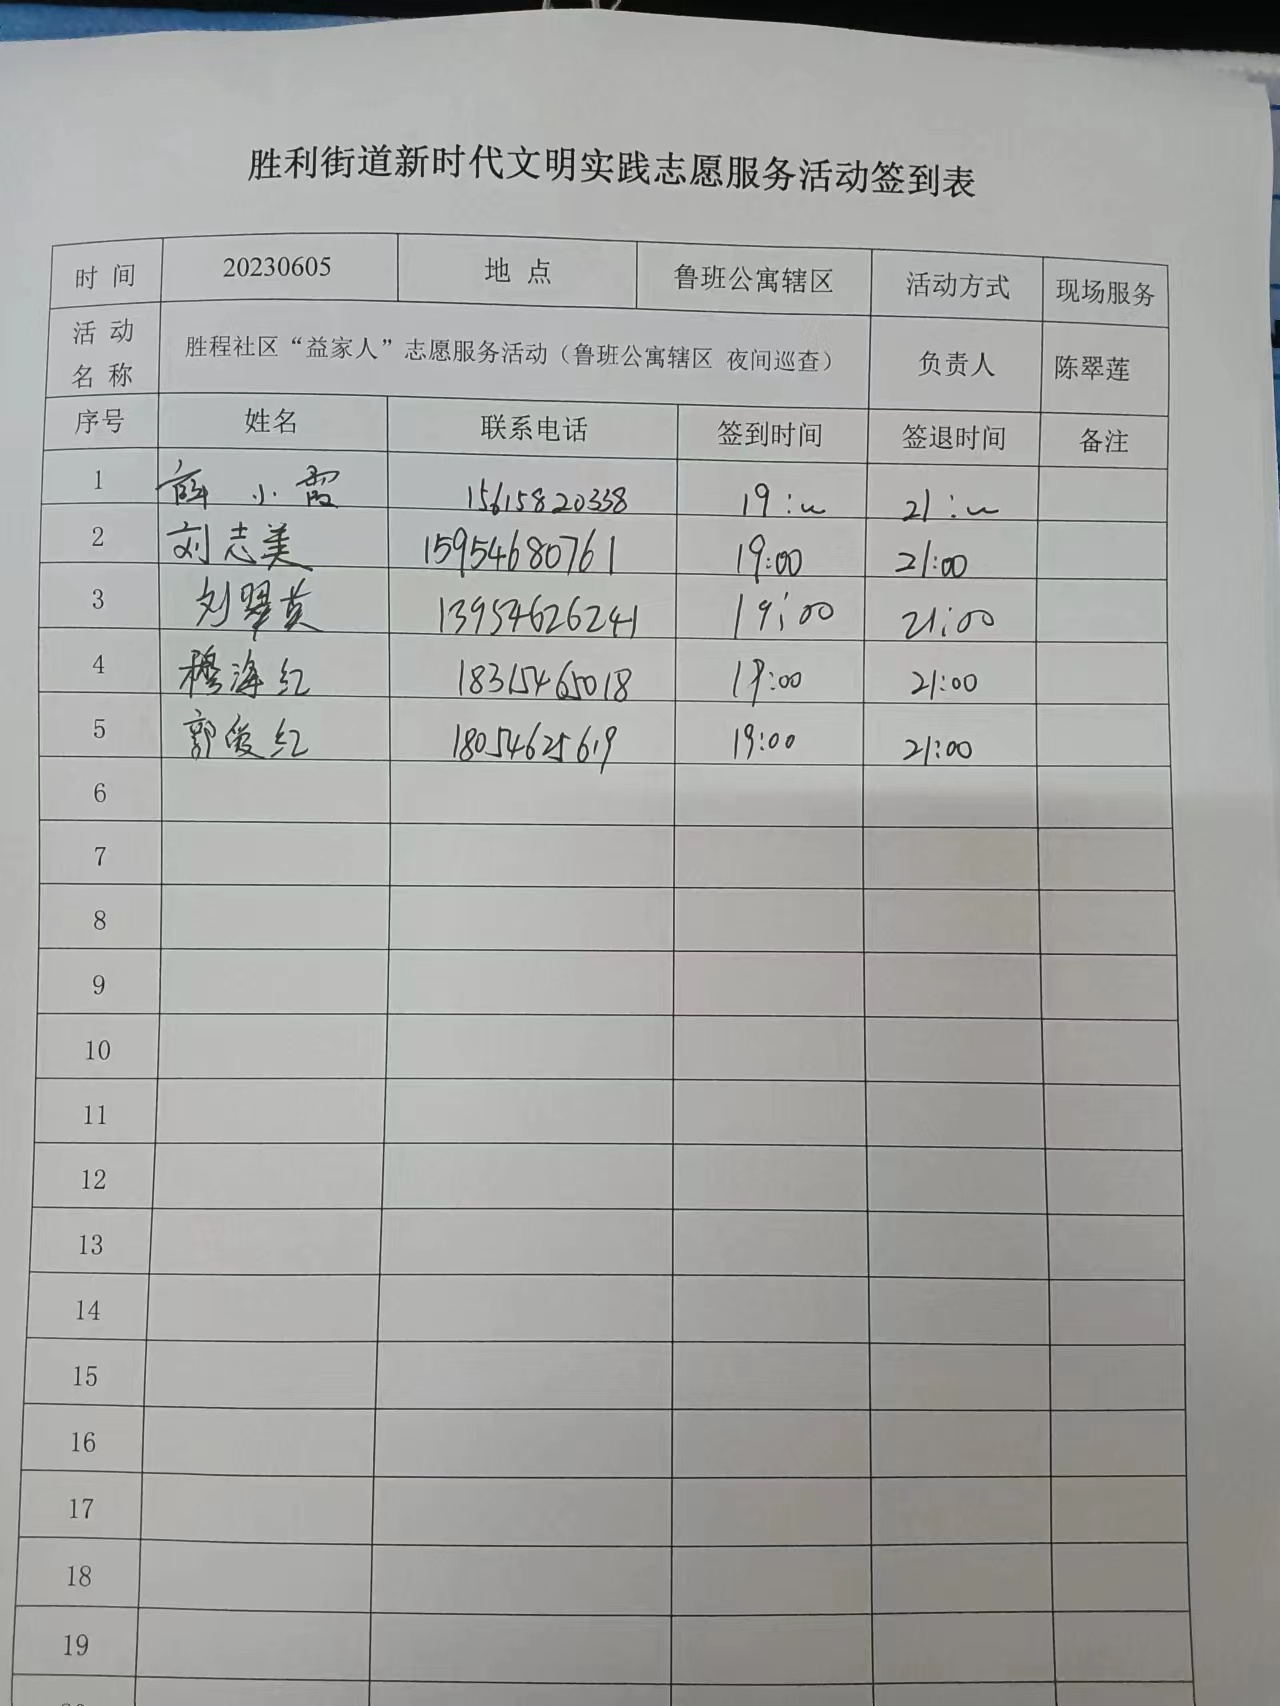 胜利街道新时代文明实践志愿服务活动签到表
时 间 20230605 地 点 鲁班公寓辖区 活动方式 现场服务
活 动 名 称 胜程社区“益家人”志愿服务活动（鲁班公寓辖区 夜间巡查） 负责人 陈翠莲
序号 姓名 联系电话 签到时间 签退时间 备注
1 薛小霞 15615820338 19: 21:
2 刘志美 15954680761 19:00 21:00
3 刘翠英 13954626241 19:00 21:00
4 穆海红 18315465018 19:00 21:00
5 郭俊红 18054625619 19:00 21:00
6
7
8
9
10
11
12
13
14
15
16
17
18
19